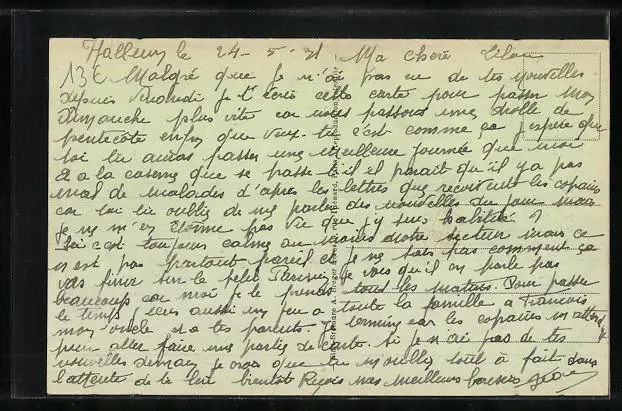 Halluin le 24-5-21 Ma chere Lilou
13€ Malgré que je n'ai pas eu de tes nouvelles
depuis vendredi je t'ecris cette carte pour passer mon
dimanche plus vite car nous passons une drolle de
pentecôte enfin que veux-tu c'est comme ça j'espere que
toi tu auras passer une meilleure journée que moi
a la caserne que se passe-t-il il parait qu'il y a pas
mal de malades d'apres les lettres que recoivent les copains
car toi tu oublie de me parler des nouvelles du jour mais
je ne m'en etonne pas vue que j'y suis habitué ?
Ici c'est toujours calme au moins notre secteur mais ce
n'est pas partout pareil et je ne sais pas comment ça
vas finir sur le petit je vois qu'il en parle pas
beaucoup car moi je le prends tous les matins. Pour passer
le temps aussi un peu a toute la famille a Francois
mon oncle et a tes parents. Je termine car les copains m'attend
pour aller faire une partie de carte. Si je n'ai pas de tes
nouvelles demain je crois que tu m'oublies tout a fait dans
l'attente de te lire bientot Reçois mes meilleurs baisers